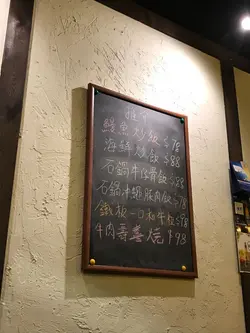 推介
鰻魚炒飯 $78
海鮮炒飯 $88
石鍋牛 飯 $88
石鍋沖繩豚肉飯 $88
鐵板一口和牛粒 $98
牛肉壽喜燒 $98